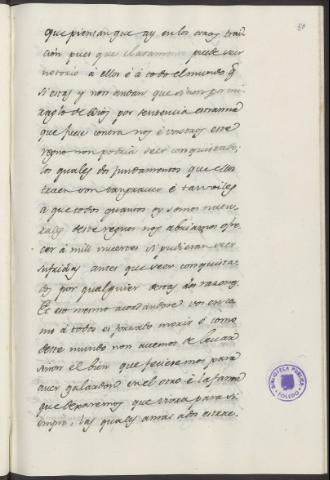 30
que piensan que ay en los otros trai
cion pues que claramente puede ser
notorio á ellos é á todo el mundo q
si estas y non andan que si non por mi
raglo de Dios por sentencia
que fuese contra nos é vosotros este
regno non podria seer conquistado;
los quales dos fundamentos que ellos
tienen son tan graves é tan viles
a que todos quantos oy somos natu
rales deste regno nos abriamos ofre
cer á mill muertes si pudieran seer
sufridas antes que seer conquista
dos por qualquier destas dos razons
Et eso mesmo acordandose vos en co
mo á todos es forzado morir é como
deste mundo non avemos de levar
sinon el bien que ficieremos para
aver galardon en el otro é la fama
que dexaremos que vivira para si
empre, las quales amas a dos
BIBLIOTECA PUBLICA
TOLEDO